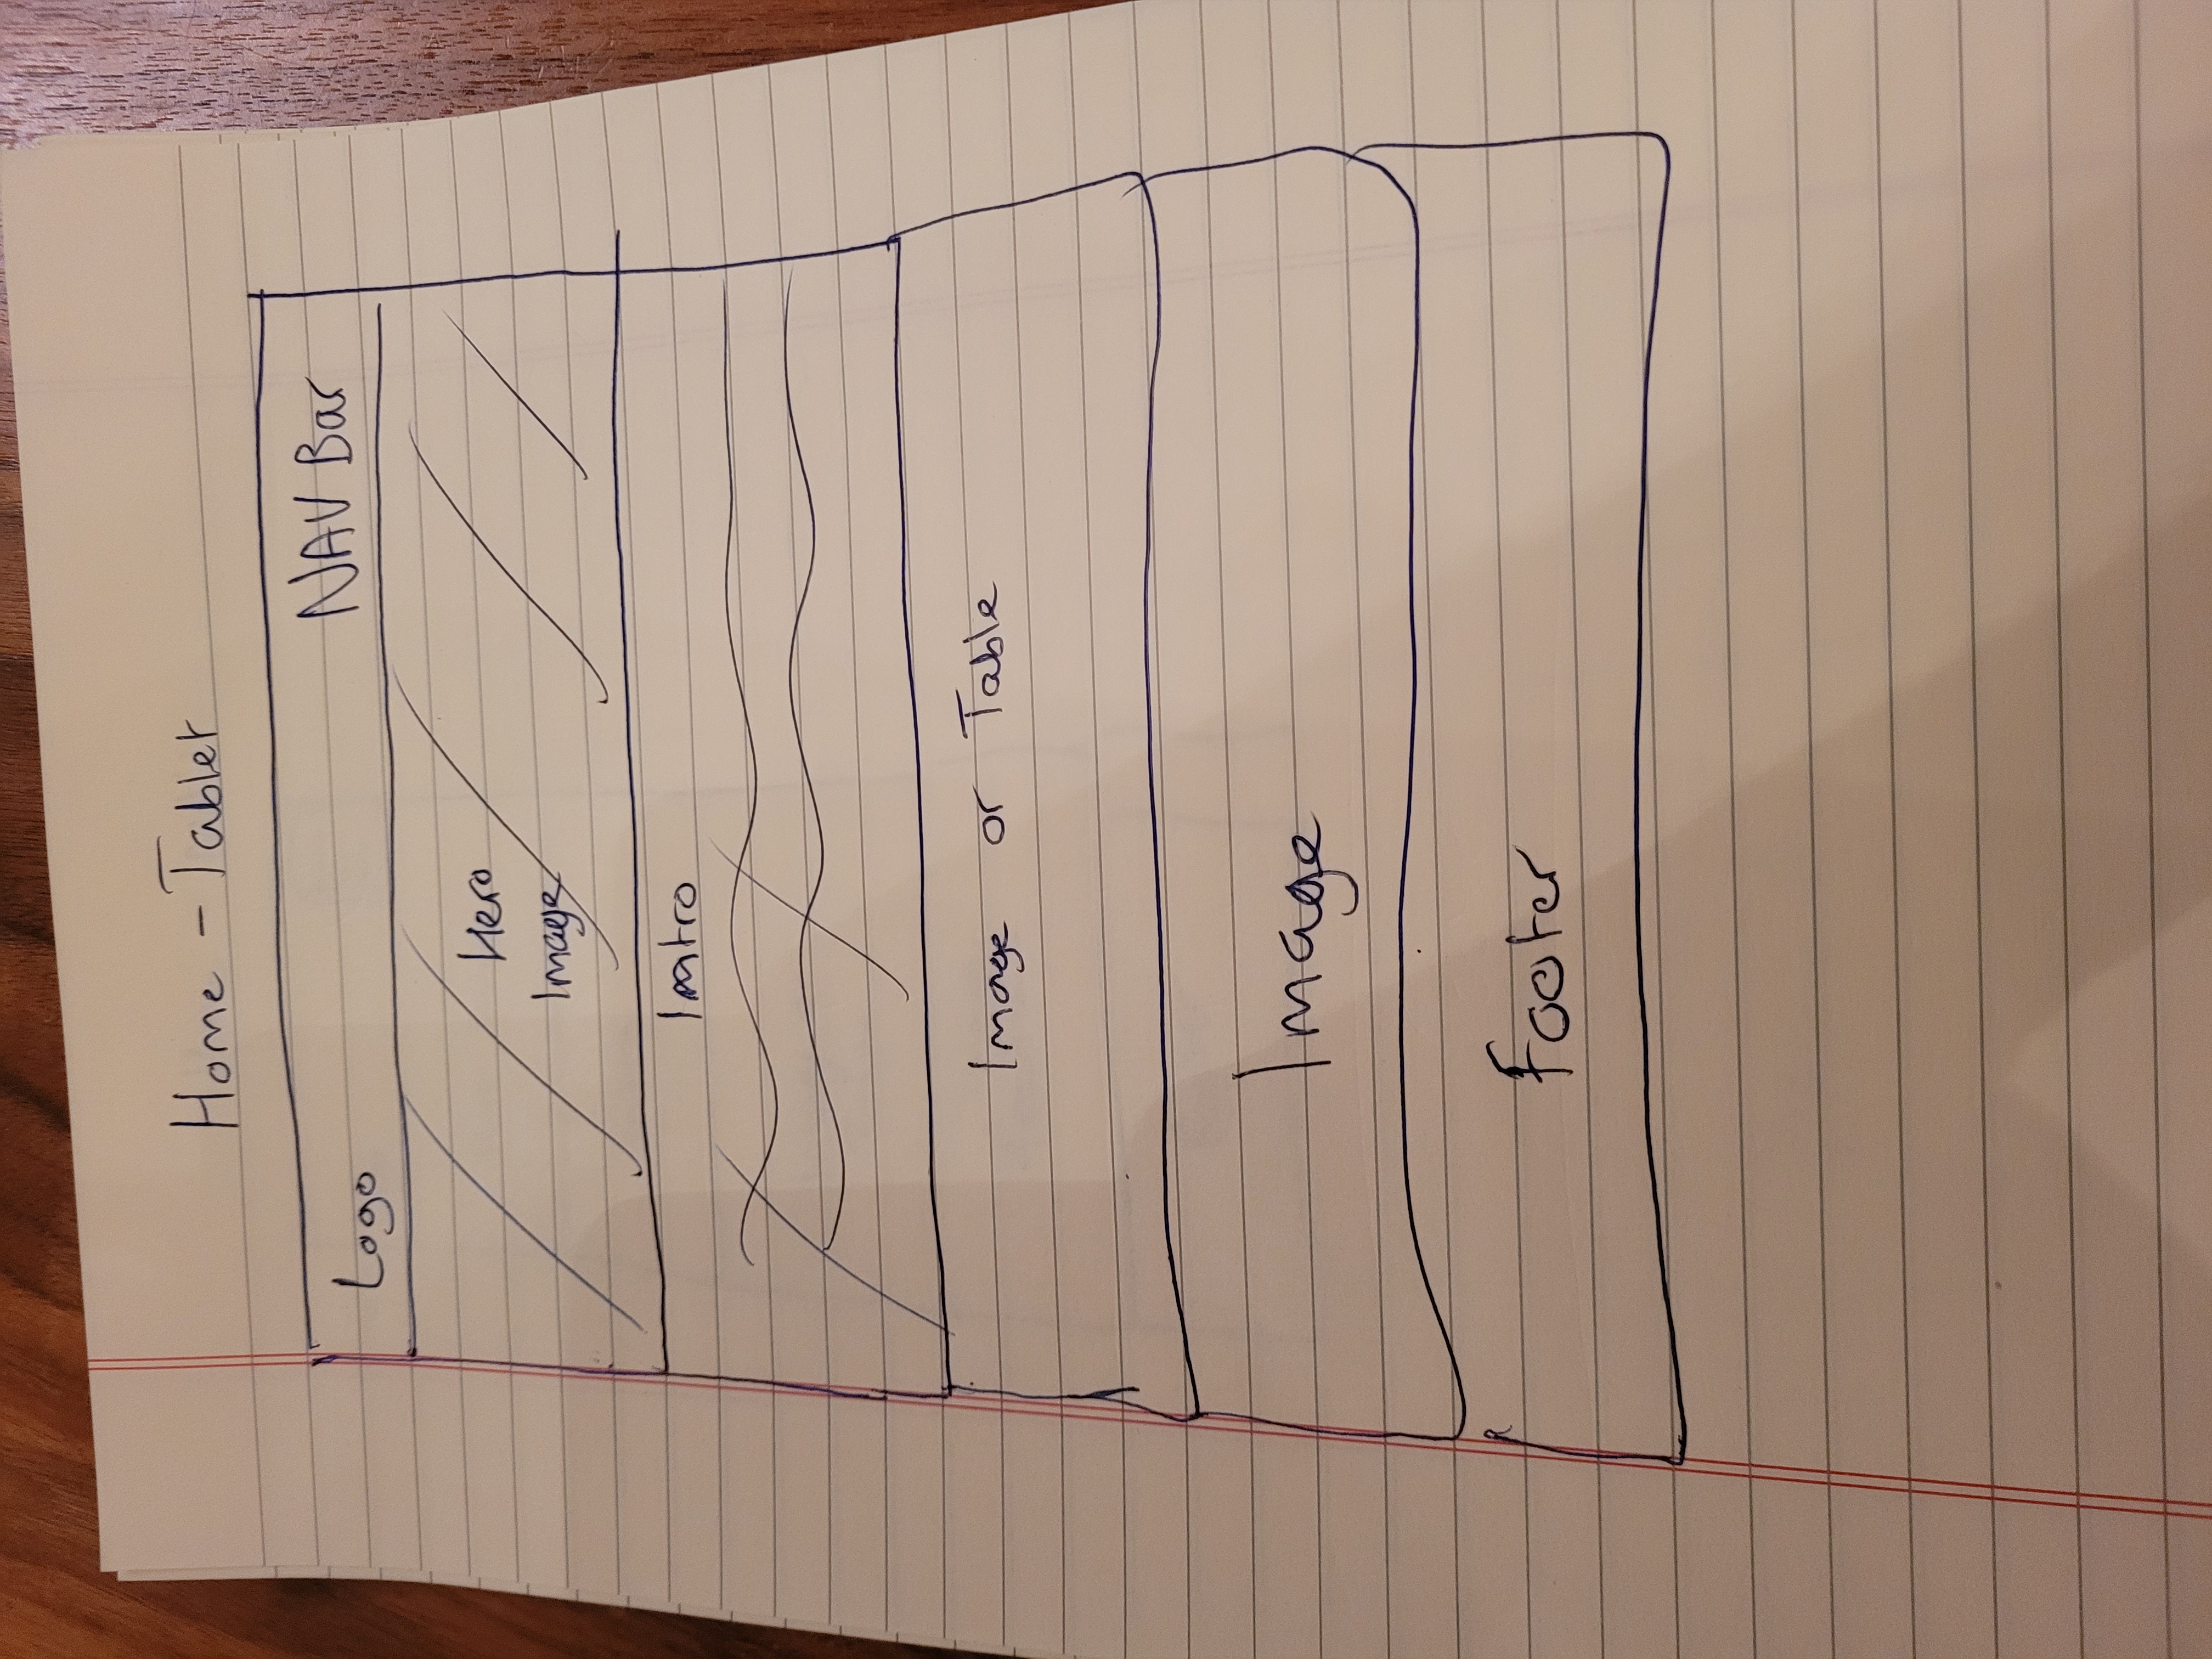 Home - Tablet
Logo NAV Bar
Hero
Image
Intro
Image or Table
Image
Footer